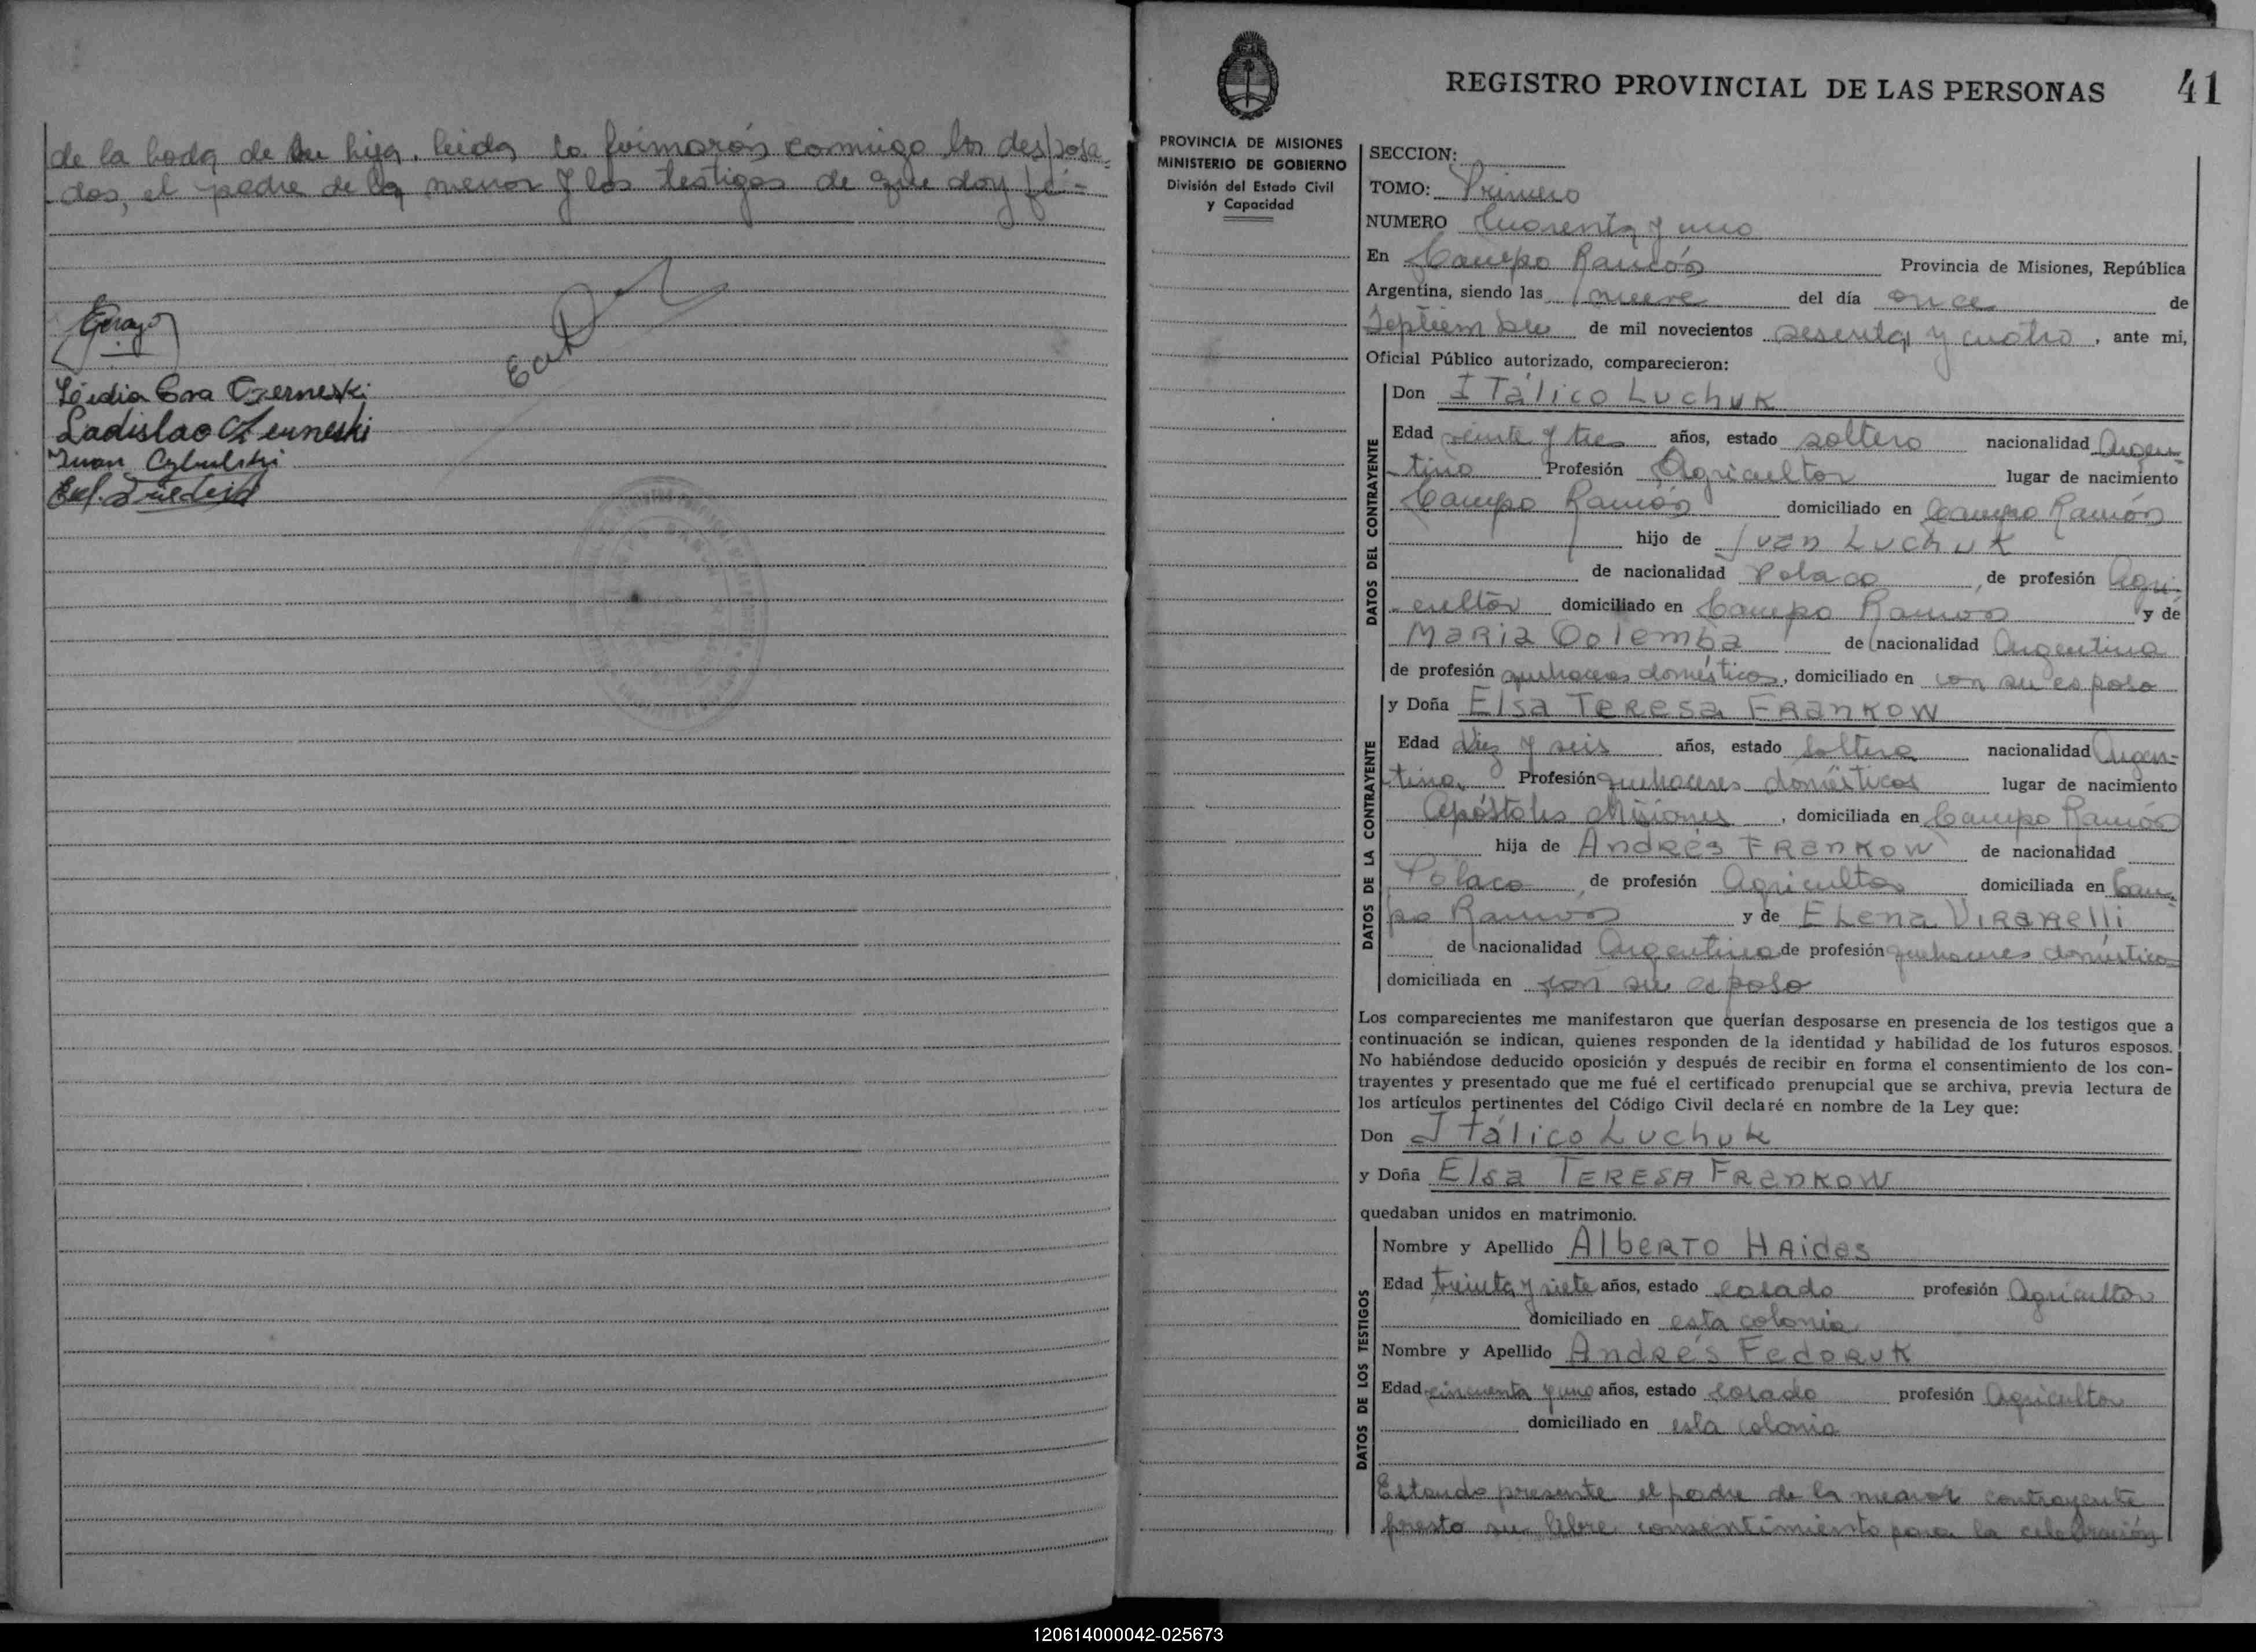 de la boda de su hija. leida la firmarón conmigo los desposa-
dos, el padre de la menor y los testigos de que doy fé.-
Lidia Eva Czerneski
Ladislao Czerneski
Juan Cybulski
REGISTRO PROVINCIAL DE LAS PERSONAS 41
PROVINCIA DE MISIONES
MINISTERIO DE GOBIERNO
División del Estado Civil
y Capacidad
SECCION:
TOMO: Primero
NUMERO Cuarenta y uno
En Campo Ramón Provincia de Misiones, República
Argentina, siendo las nueve del día once de
Septiembre de mil novecientos sesenta y cuatro, ante mi,
Oficial Público autorizado, comparecieron:
DATOS DEL CONTRAYENTE
Don Itálico Luchuk
Edad veinte y tres años, estado soltero nacionalidad Argen-
tino Profesión Agricultor lugar de nacimiento
Campo Ramón domiciliado en Campo Ramón
hijo de Juan Luchuk
de nacionalidad Polaco, de profesión Agri-
cultor domiciliado en Campo Ramón y de
Maria Golemba de nacionalidad Argentina
de profesión quehaceres domésticos, domiciliado en con su esposo
DATOS DE LA CONTRAYENTE
y Doña Elsa Teresa Frankow
Edad diez y seis años, estado soltera nacionalidad Argen-
tina. Profesión quehaceres domésticos lugar de nacimiento
Apóstoles Misiones, domiciliada en Campo Ramón
hija de Andrés Frankow de nacionalidad
Polaco, de profesión Agricultor domiciliada en Cam-
po Ramón y de Elena Virarelli
de nacionalidad Argentina de profesión quehaceres domésticos
domiciliada en con su esposo
Los comparecientes me manifestaron que querían desposarse en presencia de los testigos que a
continuación se indican, quienes responden de la identidad y habilidad de los futuros esposos.
No habiéndose deducido oposición y después de recibir en forma el consentimiento de los con-
trayentes y presentado que me fué el certificado prenupcial que se archiva, previa lectura de
los artículos pertinentes del Código Civil declaré en nombre de la Ley que:
Don Itálico Luchuk
y Doña Elsa Teresa Frankow
quedaban unidos en matrimonio.
DATOS DE LOS TESTIGOS
Nombre y Apellido Alberto Haides
Edad treinta y siete años, estado casado profesión Agricultor
domiciliado en esta colonia
Nombre y Apellido Andrés Fedoruk
Edad cincuenta y uno años, estado casado profesión Agricultor
domiciliado en esta colonia
Estando presente el padre de la menor contrayente
presto su libre consentimiento para la celebración
120614000042-025673